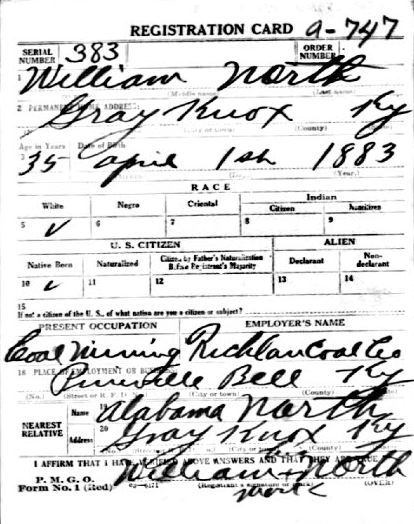 REGISTRATION CARD a-747
SERIAL NUMBER 383 ORDER NUMBER
1 William North
(Middle name) (Last name)
2 PERMANENT HOME ADDRESS:
Gray Knox Ky
(County)
Age in Years Date of Birth
35 April 1st 1883
(Year.)
RACE
White Negro Oriental Indian
Citizen Noncitizen
5 ✓ 6 7 8 9
U. S. CITIZEN ALIEN
Native Born Naturalized Citizen by Father's Naturalization Before Registrant's Majority Declarant Non-declarant
10 ✓ 11 12 13 14
15
If not a citizen of the U. S., of what nation are you a citizen or subject?
PRESENT OCCUPATION EMPLOYER'S NAME
Coal Mining Coal Co
18 PLACE OF EMPLOYMENT OR BUSINESS
Pineville Bell Ky
(No.) (Street or R. F. D. No.) (City or town) (County)
NEAREST RELATIVE Name 19 Alabama North
Address 20 Gray Knox Ky
I AFFIRM THAT I HAVE VERIFIED ABOVE ANSWERS AND THAT THEY ARE TRUE
P. M. G. O.
Form No. 1 (Red) William North
(Registrant's signature or mark) (OVER)
mark